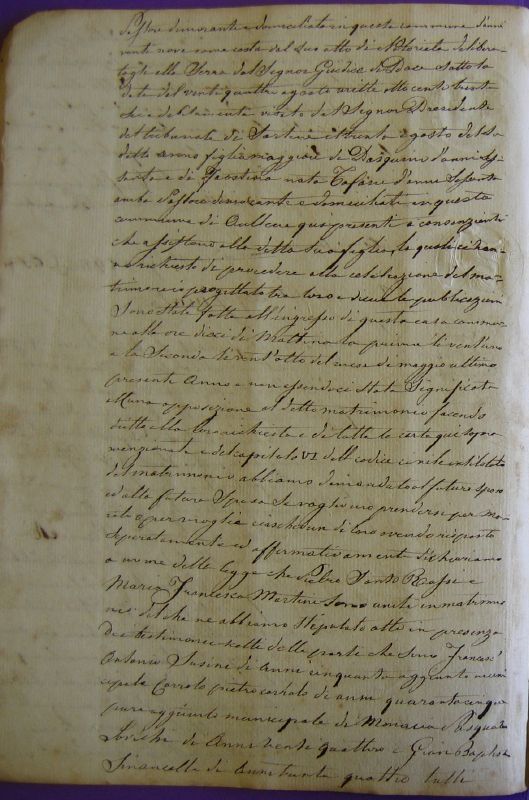 Pastore dimorante e domiciliato in questa commune d'anni
venti nove come costa del suo atto di Notorietà delibera-
togli alla Serra dal Signor Giudice di Pace sotto la
data del venti quattro agosto mille otto cento trent
sei e debitamente visto dal Signor Presidente
del tribunale di Sartene il trenta agosto del
detto anno figlia maggiore di Pasquino d'anni
e di nata Tafani d'anni sessanta
ambi Pastori dimoranti e domiciliati in questa
commune di qui presenti e consenzienti
che assistano alla detta sua figlia, i quali ci han-
no richiesto di procedere alla celebrazione del ma-
trimonio progettato tra loro e di cui le publicazioni
sono state fatte all'ingresso di questa casa commu-
ne alle ore dieci di mattina la prima li vent'uno
e la seconda le vent'otto del mese di maggio ultimo
presente anno e non essendoci stata significata
alcuna opposizione al detto matrimonio facendo
dritto alla loro richiesta e di tutte le carte qui sopra
menzionate e del capitolo VI del codice civile intitolato
del matrimonio abbiamo dimandato al futuro sposo
ed alla futura sposa se vogliono prendersi per ma-
rito e per moglie ciascheduno di loro avendo risposto
separatamente ed affermativamente dichiariamo
a nome della legge che Pietro Santo e
Maria Francesca Martini sono uniti in matrimo-
nio del che ne abbiamo stipulato atto in presenza
dei testimonii delle parti che sono Francesc'
Antonio Susini di anni cinquanta aggiunto muni
cipale pietro di anni quaranta cinque
pure aggiunto municipale di Monacia Pasquale
di anni venti quattro e Gian Baptista
di anni trenta quattro tutti